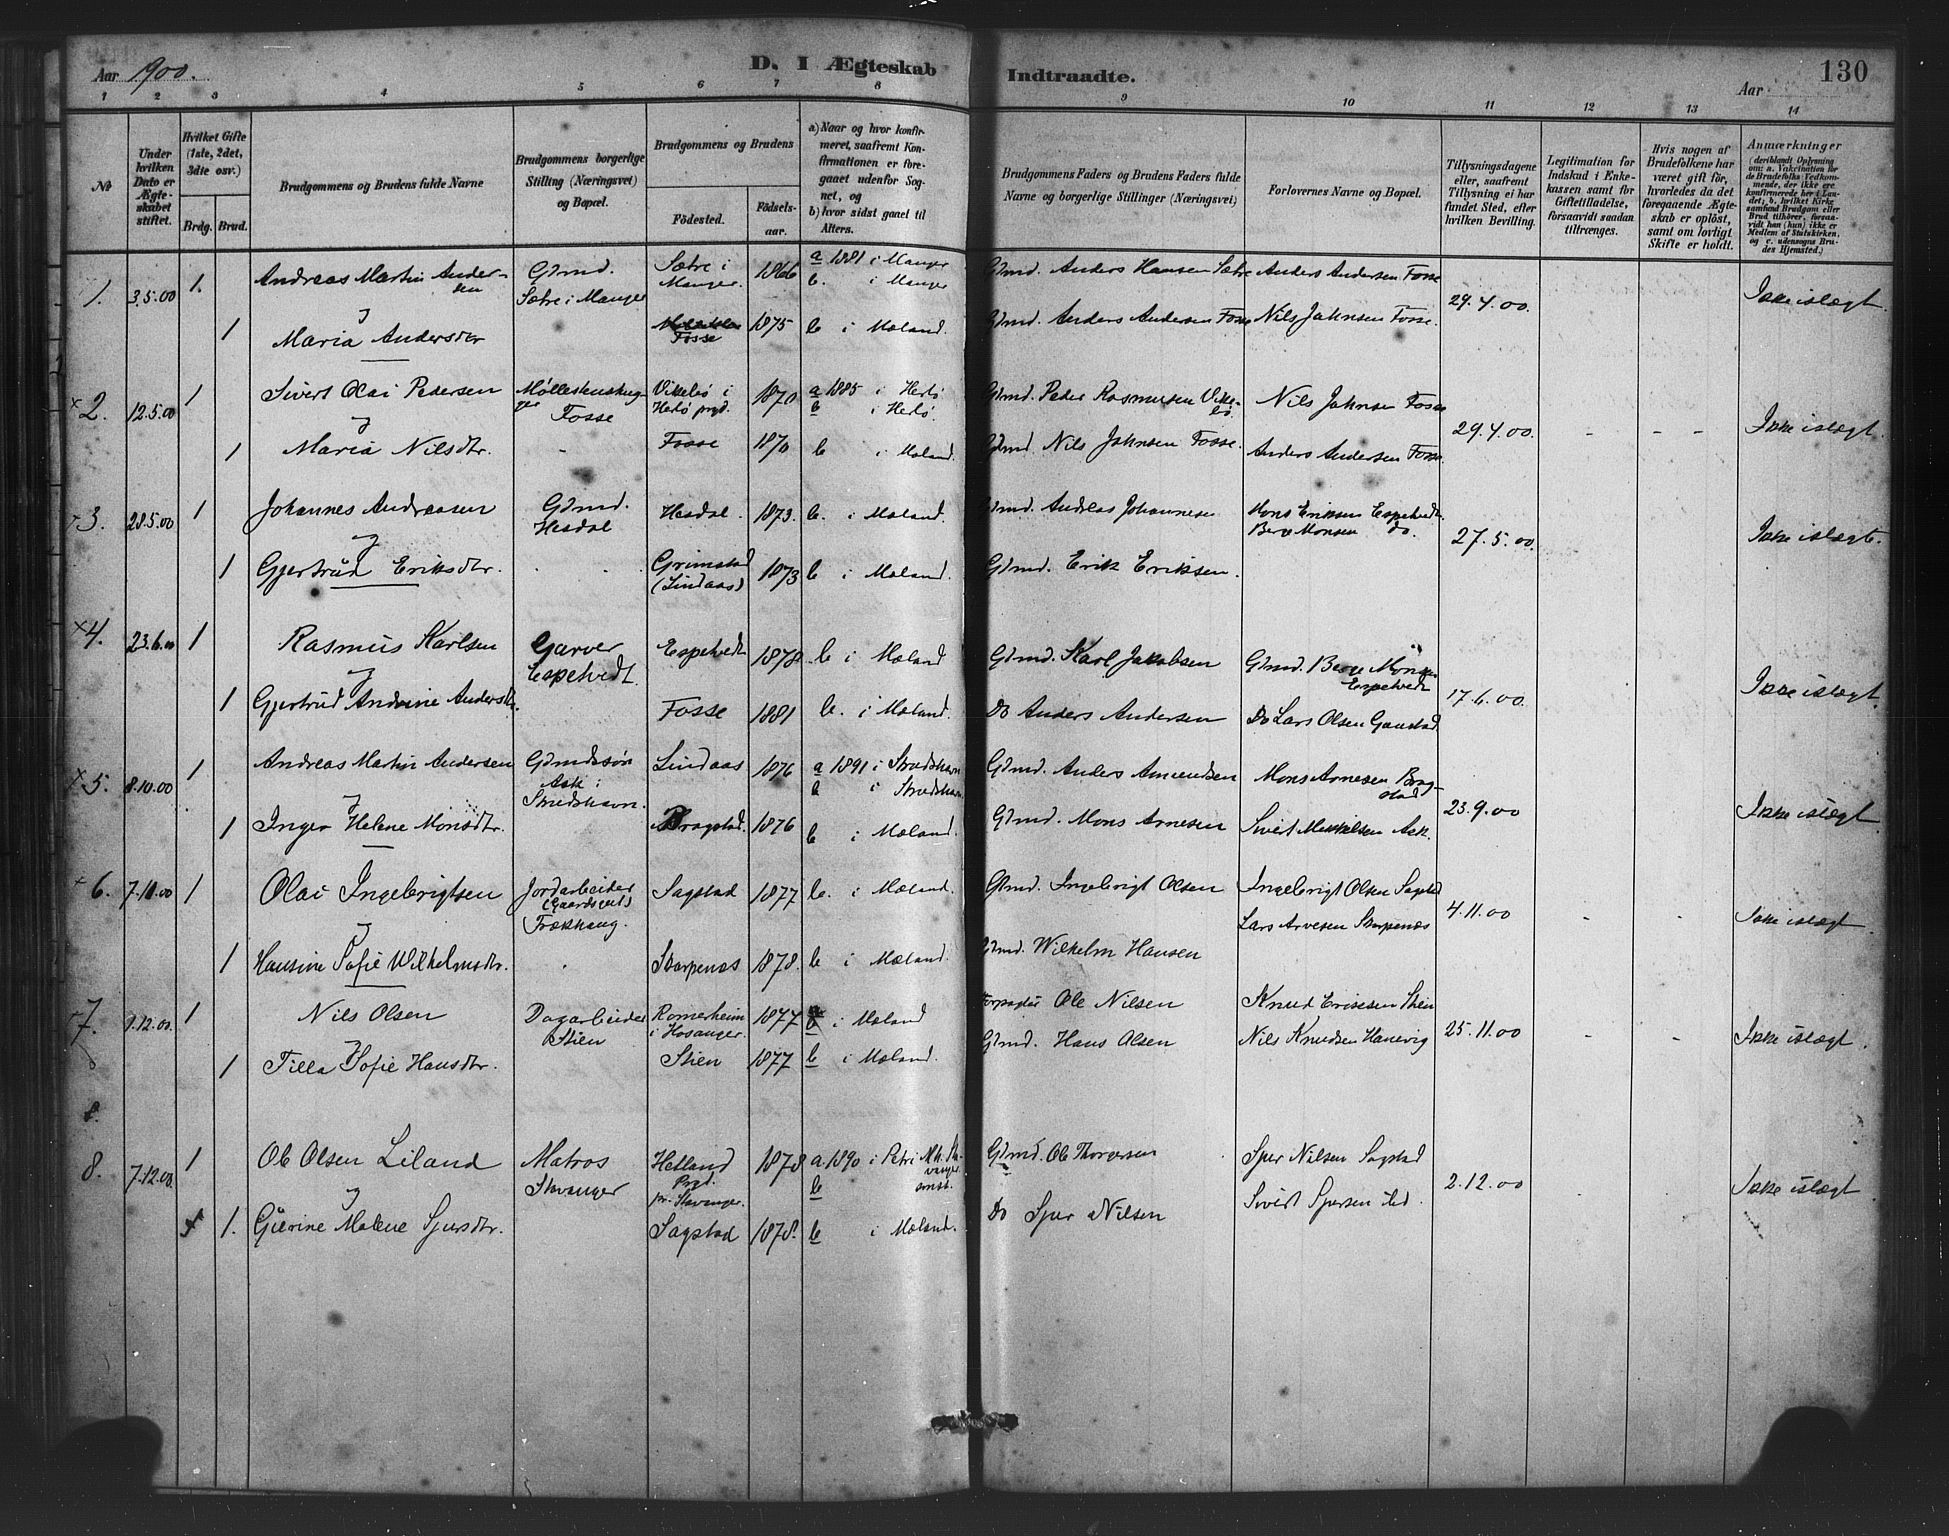 Aar 1900.
D. I Ægteskab Indtraadte.
Aar
130
1 2 3 4 5 6 7 8 9 10 11 12 13 14
№
Under hvilken Dato er Ægteskabet stiftet.
Hvilket Gifte (1ste, 2det, 3die osv.)
Brdg. Brud.
Brudgommens og Brudens fulde Navne
Brudgommens borgerlige Stilling (Næringsvei) og Bopæl.
Brudgommens og Brudens
Födested.
Födsels-aar.
a) Naar og hvor konfirmeret, saafremt Konfirmationen er foregaaet udenfor Sognet, og
b) hvor sidst gaaet til Alters.
Brudgommens Faders og Brudens Faders fulde Navne og borgerlige Stillinger (Næringsvei)
Forlovernes Navne og Bopæl.
Tillysningsdagene eller, saafremt Tillysning ei har fundet Sted, efter hvilken Bevilling.
Legitimation for Indskud i Enkekassen samt for Giftetilladelse, forsaavidt saadan tiltrænges.
Hvis nogen af Brudefolkene har været gift før, hvorledes da det foregaaende Ægteskab er oplöst, samt om lovligt Skifte er holdt.
Anmærkninger (deriblandt Oplysning om: a. Vakcination for de Brudefolks Vedkommende, der ikke ere konfirmerede her i Landet; b. hvilket Kirkesamfund Brudgom eller Brud tilhörer, forsaavidt han (hun) ikke er Medlem af Statskirken, og c. udensogns Brudes Hjemsted.)
1. 3.5.00 1. Andreas Martin Andersen Gdmd. Sætre i Manger Sætre i Manger. 1866 a 1881 i Manger b. i Manger Gdmd. Anders Hansen Sætre Anders Andersen Fosse 29.4.00. Ikke islægt.
og
1 Maria Andersdtr Fosse 1875 b i Mæland. Gdmd. Anders Andersen Fosse Nils Jahnsen Fosse.
x 2. 12.5.00 1 Sivert Olai Pedersen Fosse Vikebø i Herlø prgd. 1870 a 1885 i Herlø b i Herlø. Gdmd. Peder Rasmussen Vikebø. Nils Johnsen Fosse 29.4.00. - - - Ikke islægt.
og
1 Maria Nilsdtr. - Fosse 1870 b i Mæland. Gdmd. Nils Johnsen Fosse. Anders Andersen Fosse.
3. 28.5.00 1 Johannes Andreasen Gdmd. Hesdal Hesdal. 1873. b. i Mæland. Gdmd. Andreas Johannesen Mons Eriksen Espetvedt. Berge Monsen do. 27.5.00. Ikke islægt.
og
1 Gjertrud Eriksdtr. Grimstad (Lindaas) 1873 b i Mæland. Gdmd. Erik Eriksen.
x 4. 23.6.00 1 Rasmus Karlsen Garver Espetvedt. Espetvedt 1878. b i Mæland Gdmd. Karl Jakobsen Gdmd. Berge Monsen Espetvedt 17.6.00. Ikke islægt.
og
1 Gjertrud Andrine Andersdtr. Fosse 1881 b. i Mæland. Do Anders Andersen Do Lars Olsen Gaustad
x 5. 8.10.00 1 Andreas Martin Andersen Gdmdssøn Ask i Strudshavn. Lindaas 1876 a 1891 i Strudshavn b i Strudshavn. Gdmd. Anders Amundsen Mons Arnesen Brogstad 23.9.00 Ikke islægt.
og
1 Inger Helene Monsdtr. Brogstad. 1876 b i Mæland. Gdmd. Mons Arnesen Sivert Mikkelsen Ask.
6. 7.11.00 1 Olai Ingebrigtsen Jordarbeider (Gaardsgut) Frækhaug. Sagstad 1877 b. i Mæland. Gdmd. Ingebrigt Olsen Ingebrigt Olsen Sagstad Lars Arnesen Skarpenæs 4.11.00 - - Ikke islægt.
og
1 Hansine Sofie Wilhelmsdtr. Skarpenæs 1878. b i Mæland. Gdmd. Wilhelm Hansen
7. 1.12.00. 1 Nils Olsen Dagarbeider Stien Romerheim i Hosanger. 1877 b i Mæland Ole Nilsen Knud Stien Nils Knudsen Hanevig 25.11.00 - - Ikke islægt.
og
1 Tilla Sofie Hansdtr. Stien 1877 b i Mæland. Gdmd. Hans Olsen
8.
8. 7.12.00. 1 Ole Olsen Liland Matros Stavanger Hetland Prgd. pr. Stavanger. 1878 a 1890 i Petri Mh. Stavanger b Gdmd. Ole Thorgersen Sjur Nilsen Sagstad 2.12.00 - - Ikke islægt.
og
1. Gjerine Malene Sjursdtr. Sagstad 1878. b i Mæland. Do Sjur Nilsen Sivert Sjursen ibd.